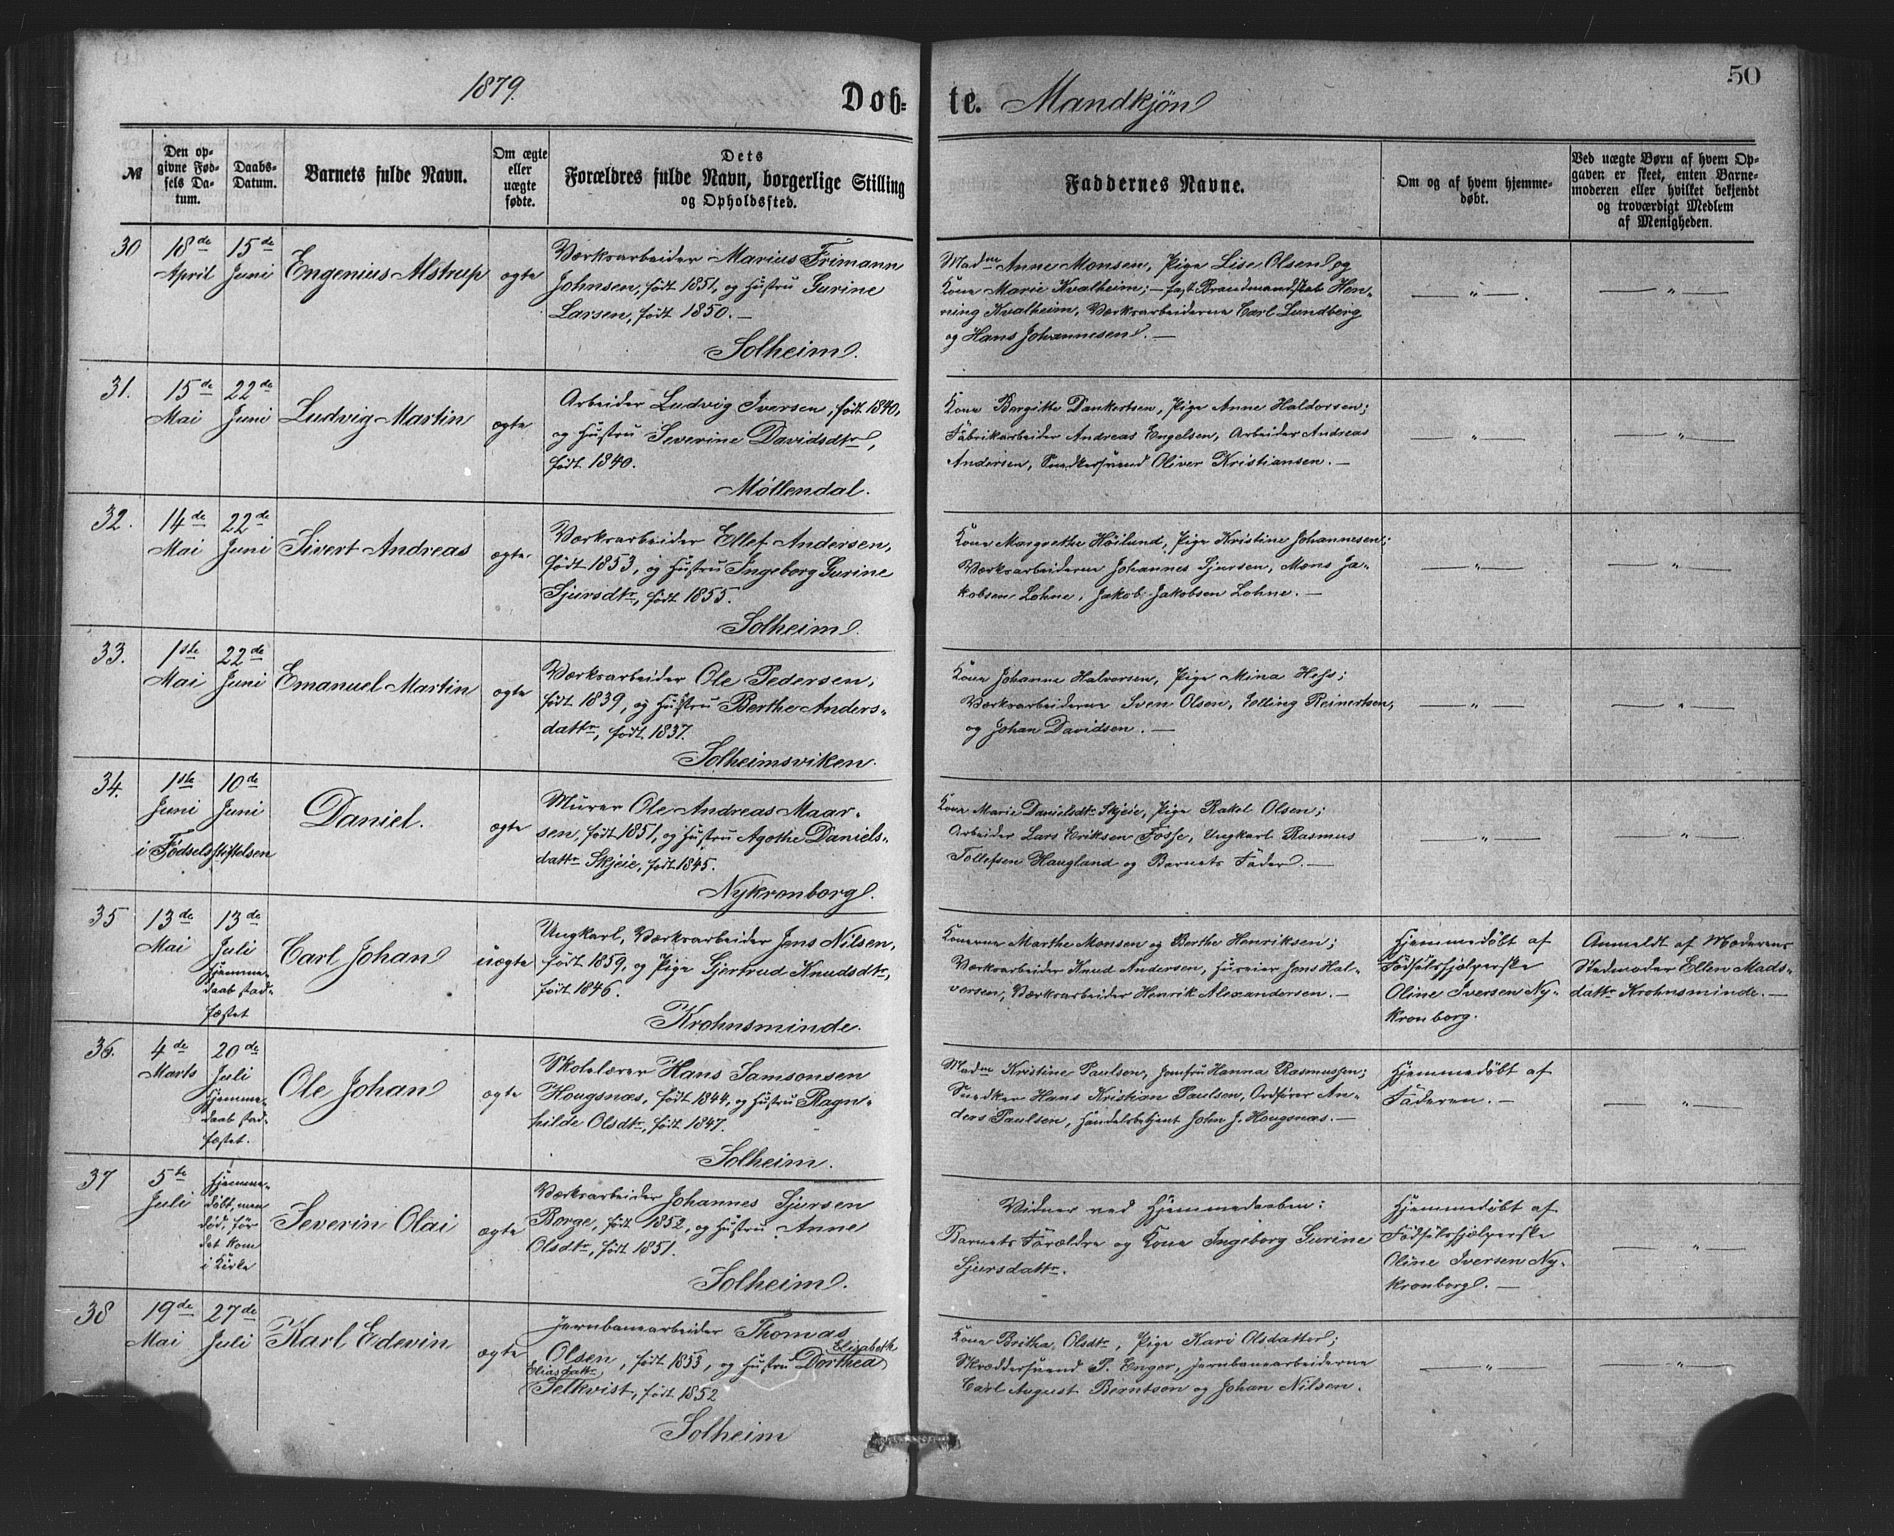 1879.
Døb-
te. Mandkjøn
50
№
Den op-
givne Fød-
sels Da-
tum.
Daabs-
Datum.
Barnets fulde Navn.
Om ægte
eller
uægte
fødte.
Dets
Forældres fulde Navn, borgerlige Stilling
og Opholdssted.
Faddernes Navne.
Om og af hvem hjemme-
døbt.
Ved uægte Børn af hvem Op-
gaven er skeet, enten Barne-
moderen eller hvilket bekjendt
og troværdigt Medlem
af Menigheden.
30
18de
April
15de
Juni
Engenius Alstrup
ægte
Værksarbeider Marius Frimann
Johnsen, født 1851, og Hustru Gurine
Larsen, født 1850. —
Solheim.
Madme Anne Monsen, Pige Lise Olsen og
Kone Marie Kvalheim; — fast Brandmandskab Hen-
ning Kvalheim, Værksarbeiderne Carl Lundberg
og Hans Johannesen. —
— " —.
— " —
31.
15de
Mai
22de
Juni
Ludvig Martin
ægte
Arbeider Ludvig Iversen, født 1840,
og Hustru Severine Davidsdtr,
født 1840.
Møllendal.
Kone Bergitte Dankertsen, Pige Anne Haldorsen;
Fabrikarbeider Andreas Engelsen, Arbeider Andreas
Andersen, Snedkersvend Oliver Kristiansen. —
— " —
— " —
32.
14de
Mai
22de
Juni
Sivert Andreas
ægte
Værksarbeider Ellef Andersen,
født 1853, og Hustru Ingeborg Gurine
Sjursdtr, født 1855.
Solheim.
Kone Margrethe Høilund, Pige Kristine Johannesen;
Værksarbeiderne Johannes Sjursen, Mons Ja-
kobsen Lohne, Jakob Jakobsen Lohne. —
— " —
— " —
33.
1ste
Mai
22de
Juni
Emanuel Martin
ægte
Værksarbeider Ole Pedersen,
født 1839, og Hustru Berthe Anders-
dattr, født 1837.
Solheimsviken.
Kone Johanne Halvorsen, Pige Mina Hess;
Værksarbeiderne Sven Olsen, Elling Reinertsen,
og Johan Davidsen. —
— " —
— " —
34.
1ste
Juni
10de
Juni
i Fødselsstiftelsen
Daniel.
ægte
Murer Ole Andreas Maar-
sen, født 1851, og Hustru Agathe Daniels-
dattr Skjeie, født 1845.
Nykronborg.
Kone Marie Danielsdtr Skjeie, Pige Rakel Olsen;
Arbeider Lars Eriksen Fosse, Ungkarl Rasmus
Tollefsen Haugland og Barnets Fader. —
— " —
— " —
35
13de
Mai
13de
Juli
Hjemme-
daab stad-
fæstet
Carl Johan
uægte
Ungkarl, Værksarbeider Jens Nilsen,
født 1859, og Pige Gjertrud Knudsdtr,
født 1846.
Krohnsminde.
Konerne Marthe Monsen og Berthe Henriksen;
Værksarbeider Knud Andersen, Huseier Jens Hal-
versen, Værksarbeider Henrik Alexandersen. —
Hjemmedøbt af
Fødselshjælperske
Oline Iversen Ny-
kronborg.
Anmeldt af Moderens
Stedmoder Ellen Mads-
dattr Krohnsminde. —
36.
4de
Marts
20de
Juli
Hjemme-
daab stad-
fæstet.
Ole Johan
ægte
Skolelærer Hans Samsonsen
Hougsnæs, født 1844, og Hustru Ragn-
hilde Olsdtr, født 1847.
Solheim.
Madme Kristine Paulsen, Jomfru Hanna Rasmussen;
Snedker Hans Kristian Paulsen, Ordfører An-
ders Paulsen, Handelsbetjent John J. Hougsnæs. —
Hjemmedøbt af
Faderen. —
— " —
37
5te
Juli
Hjemme-
døbt, men
død, før
det kom
i Kirke
Severin Olai
ægte
Værksarbeider Johannes Sjursen
Borge, født 1852, og Hustru Anne
Olsdtr, født 1851.
Solheim.
Vidner ved Hjemmedaaben:
Barnets Forældre og Kone Ingeborg Gurine
Sjursdattr.
Hjemmedøbt af
Fødselshjælperske
Oline Iversen Ny-
kronborg. —
— " —
38
19de
Mai
27de
Juli
Karl Edevin
ægte
Jernbanearbeider Thomas
Elisabeth
Olsen, født 1853, og Hustru Dorthea
Eliasdattr
Selkvist, født 1852
Solheim
Kone Brithe Olsdtr, Pige Kari Olsdatter;
Skræddersvend P. Enger, Jernbanearbeiderne
Carl August Berntson og Johan Nilsen.
— " —
— " —